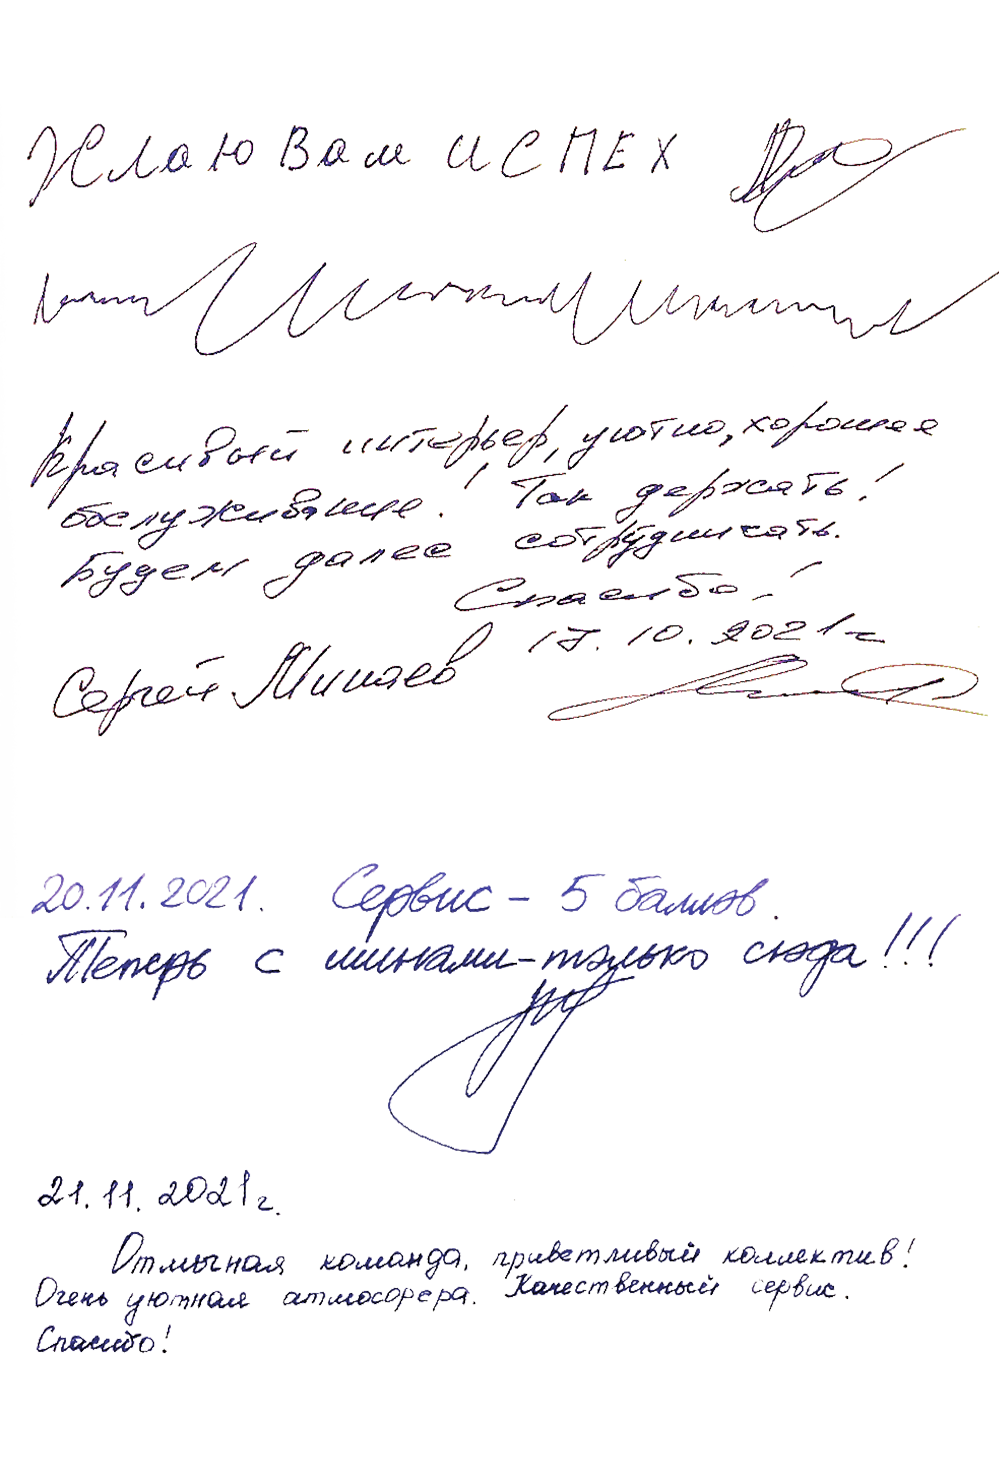 Жлаю Вам ИСПЕХ
Красивый интерьер, уютно, хорошее
обслуживание! Так держать!
Будем далее сотрудничать.
Спасибо!
17.10.2021 г
Сергей Минаев
20.11.2021. Сервис – 5 баллов.
Теперь с шинами – только сюда!!!
21.11.2021г.
Отличная команда, приветливый коллектив!
Очень уютная атмосфера. Качественный сервис.
Спасибо!